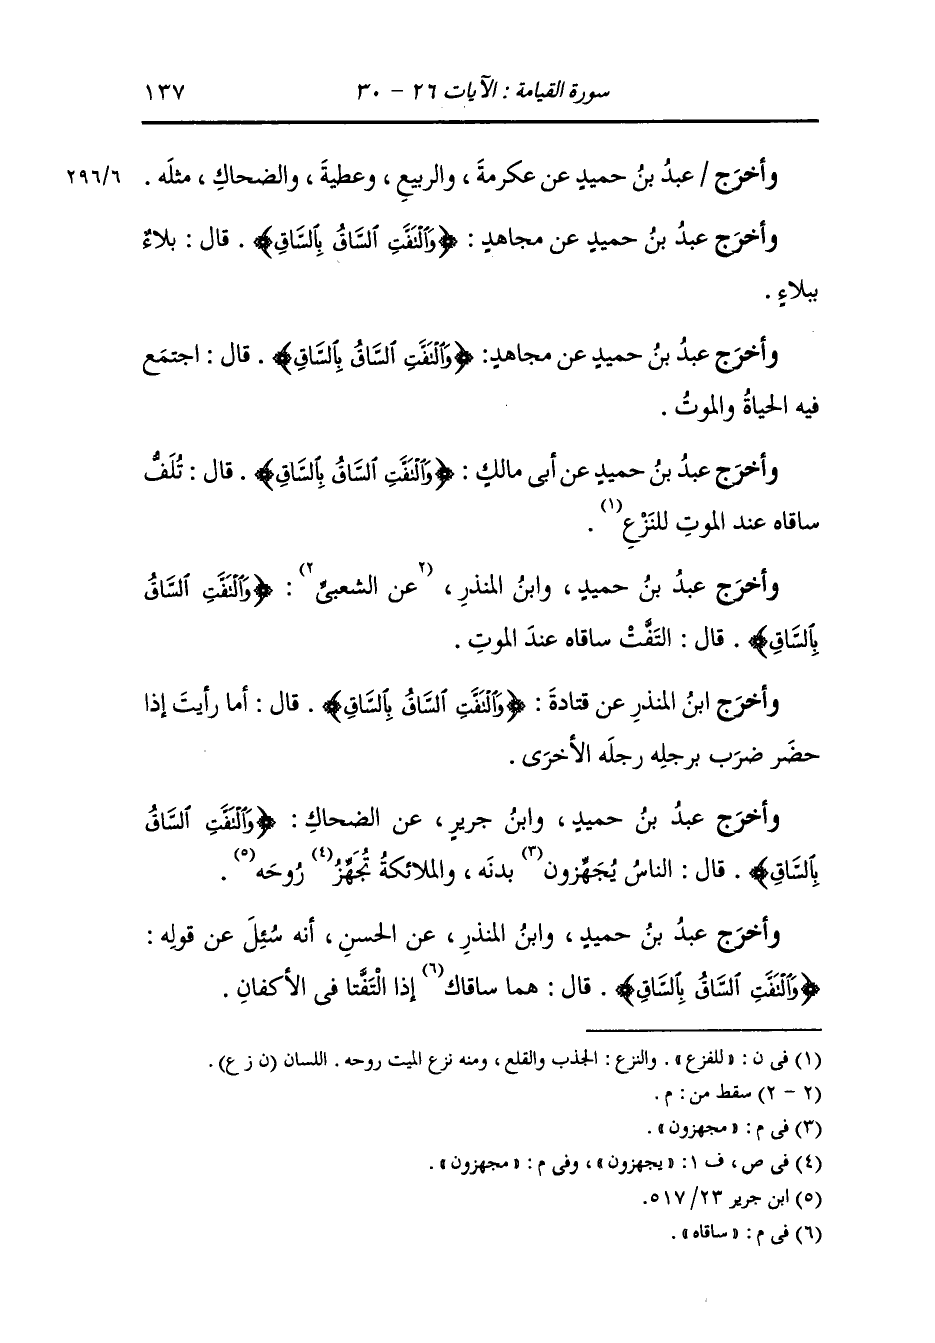 سورة القيامة : الآيات ٢٦ - ٣٠ ١٣٧
وأخرَج / عبدُ بنُ حميدٍ عن عكرمةَ ، والربيعِ ، وعطيةَ ، والضحاكِ ، مثلَه . ٢٩٦/٦
وأخرَج عبدُ بنُ حميدٍ عن مجاهدٍ : ﴿وَٱلْتَفَّتِ ٱلسَّاقُ بِٱلسَّاقِ﴾ . قال : بلاءٌ
ببلاءٍ .
وأخرَج عبدُ بنُ حميدٍ عن مجاهدٍ: ﴿وَٱلْتَفَّتِ ٱلسَّاقُ بِٱلسَّاقِ﴾ . قال : اجتمَع
فيه الحياةُ والموتُ .
وأخرَج عبدُ بنُ حميدٍ عن أبى مالكٍ : ﴿وَٱلْتَفَّتِ ٱلسَّاقُ بِٱلسَّاقِ﴾ . قال : تُلَفُّ
ساقاه عند الموتِ للنَزْعِ(١) .
وأخرَج عبدُ بنُ حميدٍ ، وابنُ المنذرِ ، (٢عن الشعبىِّ٢) : ﴿وَٱلْتَفَّتِ ٱلسَّاقُ
بِٱلسَّاقِ﴾ . قال : التَفَّتْ ساقاه عندَ الموتِ .
وأخرَج ابنُ المنذرِ عن قتادةَ : ﴿وَٱلْتَفَّتِ ٱلسَّاقُ بِٱلسَّاقِ﴾ . قال : أما رأيتَ إذا
حضَر ضرَب برجلِه رجلَه الأخرَى .
وأخرَج عبدُ بنُ حميدٍ ، وابنُ جريرٍ ، عن الضحاكِ : ﴿وَٱلْتَفَّتِ ٱلسَّاقُ
بِٱلسَّاقِ﴾ . قال : الناسُ يُجَهِّزون(٣) بدنَه ، والملائكةُ تُجَهِّزُ(٤) رُوحَه(٥) .
وأخرَج عبدُ بنُ حميدٍ ، وابنُ المنذرِ ، عن الحسنِ ، أنه سُئِلَ عن قولِه :
﴿وَٱلْتَفَّتِ ٱلسَّاقُ بِٱلسَّاقِ﴾ . قال : هما ساقاك(٦) إذا الْتَفَّتا فى الأكفانِ .
(١) فى ن : « للفزع » . والنزع : الجذب والقلع ، ومنه نزع الميت روحه . اللسان (ن ز ع) .
(٢ - ٢) سقط من : م .
(٣) فى م : « مجهزون » .
(٤) فى ص ، ف ١: « يجهزون » ، وفى م : « مجهزون » .
(٥) ابن جرير ٥١٧/٢٣.
(٦) فى م : « ساقاه » .